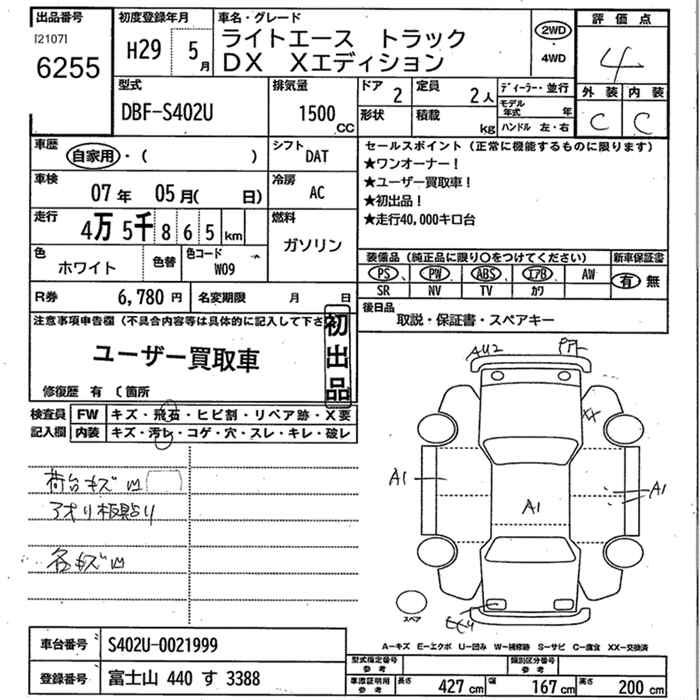 出品番号
I21071
6255
初度登録年月
H29 5月
車名・グレード
ライトエース トラック
DX Xエディション
2WD
・
4WD
評価点
4
外装 内装
C C
型式
DBF-S402U
排気量
1500
CC
ドア 2
形状
定員 2人
積載 kg
ディーラー・並行
モデル年式 年
ハンドル 左・右
車歴
自家用・( )
シフト DAT
車検
07年 05月( 日)
冷房 AC
走行
4万5千865km
燃料
ガソリン
色
ホワイト
色替
色コード
W09
R券 6,780円
名変期限 月 日
セールスポイント(正常に機能するものに限ります)
★ワンオーナー!
★ユーザー買取車!
★初出品!
★走行40,000キロ台
装備品(純正品に限り〇をつけてください)
新車保証書
PS、PW、ABS、エアB AW
SR NV TV カワ
有・無
後日品
取説・保証書・スペアキー
注意事項申告欄(不具合内容等は具体的に記入して下さ
初出品
ユーザー買取車
修復歴 有 ( 箇所
検査員
記入欄
FW キズ・飛石・ヒビ割・リペア跡・X要
内装 キズ・汚レ・コゲ・穴・スレ・キレ・破レ
荷台キズ凹
アオリ板貼り
各キズ凹
AU2
A1
A1
A1
XX
スペア
車台番号 S402U-0021999
登録番号 富士山 440 す 3388
A-キズ E-エクボ U-凹み W-補修跡 S-サビ C-腐食 XX-交換済
型式指定番号
参考
類別区分番号
参考
車庫証明用
参考
長さ 427cm 幅 167cm 高さ 200cm